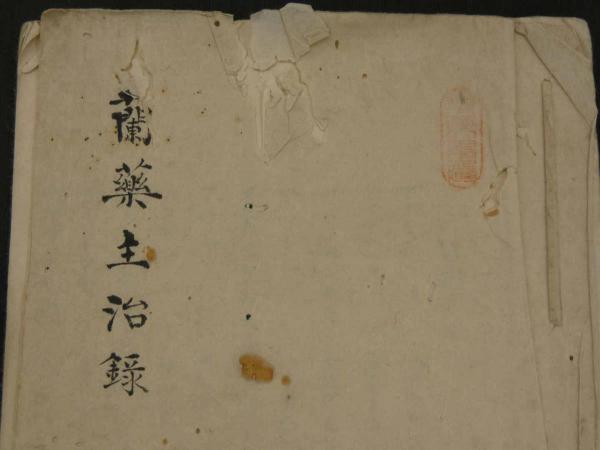 蘭藥主治錄